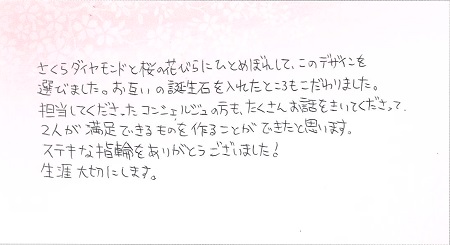 さくらダイヤモンドと桜の花びらにひとめぼれして、このデザインを
選びました。お互いの誕生石を入れたところもこだわりました。
担当してくださったコンシェルジュの方も、たくさんお話をきいてくださって、
2人が満足できるものを作ることができたと思います。
ステキな指輪をありがとうございました!
生涯大切にします。